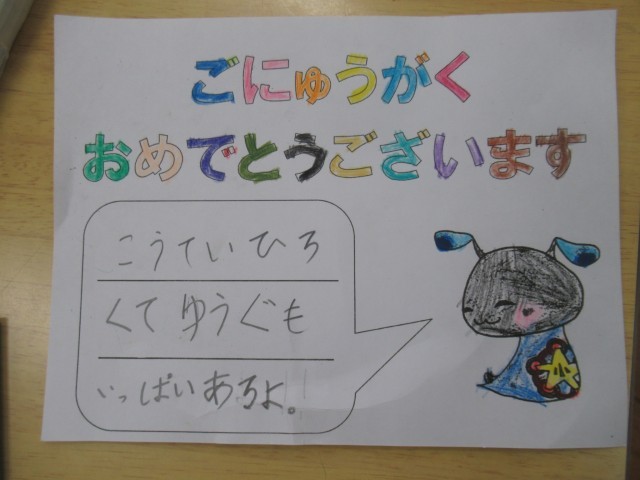 ごにゅうがく
おめでとうございます
こうていひろ
くてゆうぐも
いっぱいあるよ。